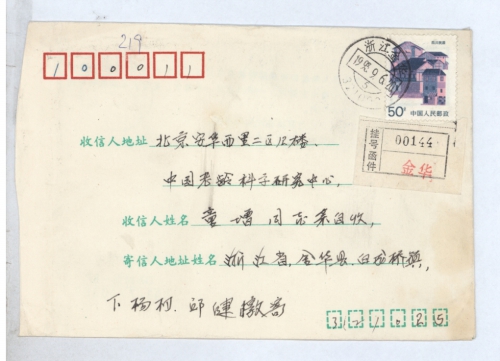 219
100011
浙江
1995.9.6
50分 中国人民邮政
挂号函件 00144 金华
收信人地址 北京安华西里二区12楼、
中国老龄科学研究中心,
收信人姓名 童增同志亲自收,
寄信人地址姓名 浙江省,金华县,白龙桥镇,
下杨村 邱健
321025